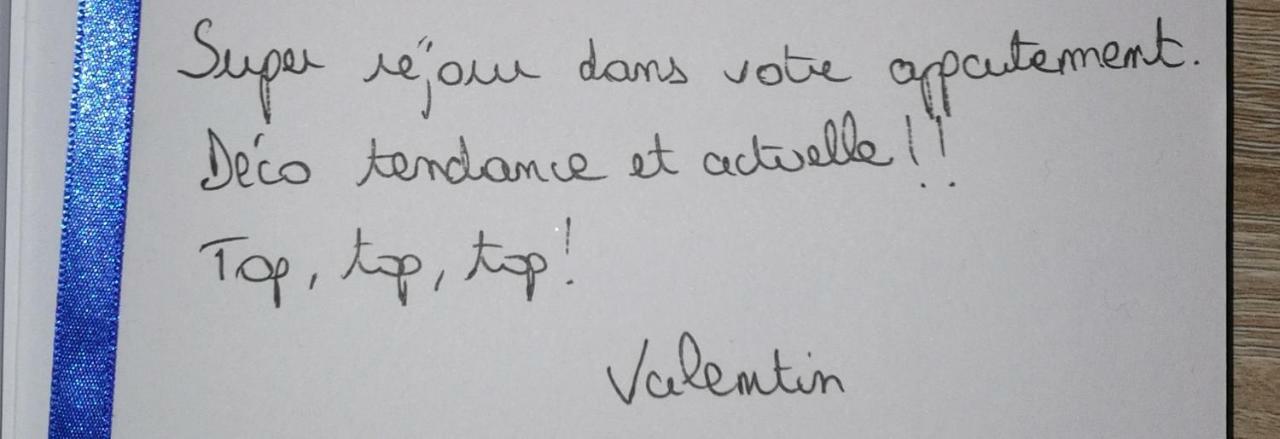 Super séjour dans votre appartement.
Déco tendance et actuelle!!
Top, top, top!
Valentin